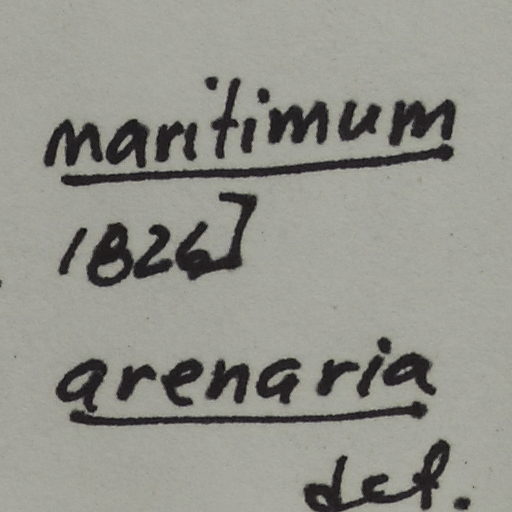 maritimum
1826]
arenaria
def.